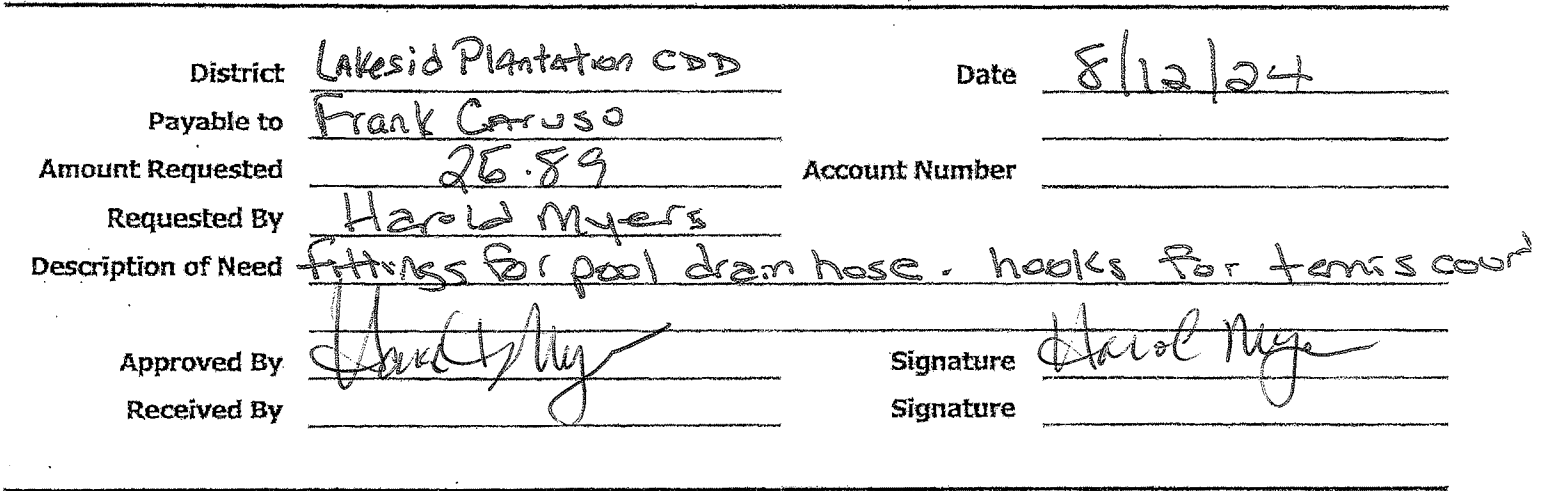 District Lakesid Plantation CDD Date 8/12/24
Payable to Frank Caruso
Amount Requested 25.89 Account Number
Requested By Harold Myers
Description of Need fittings for pool drain hose. hooks for tennis court
Approved By Harold Myers Signature Harol Mye
Received By Signature